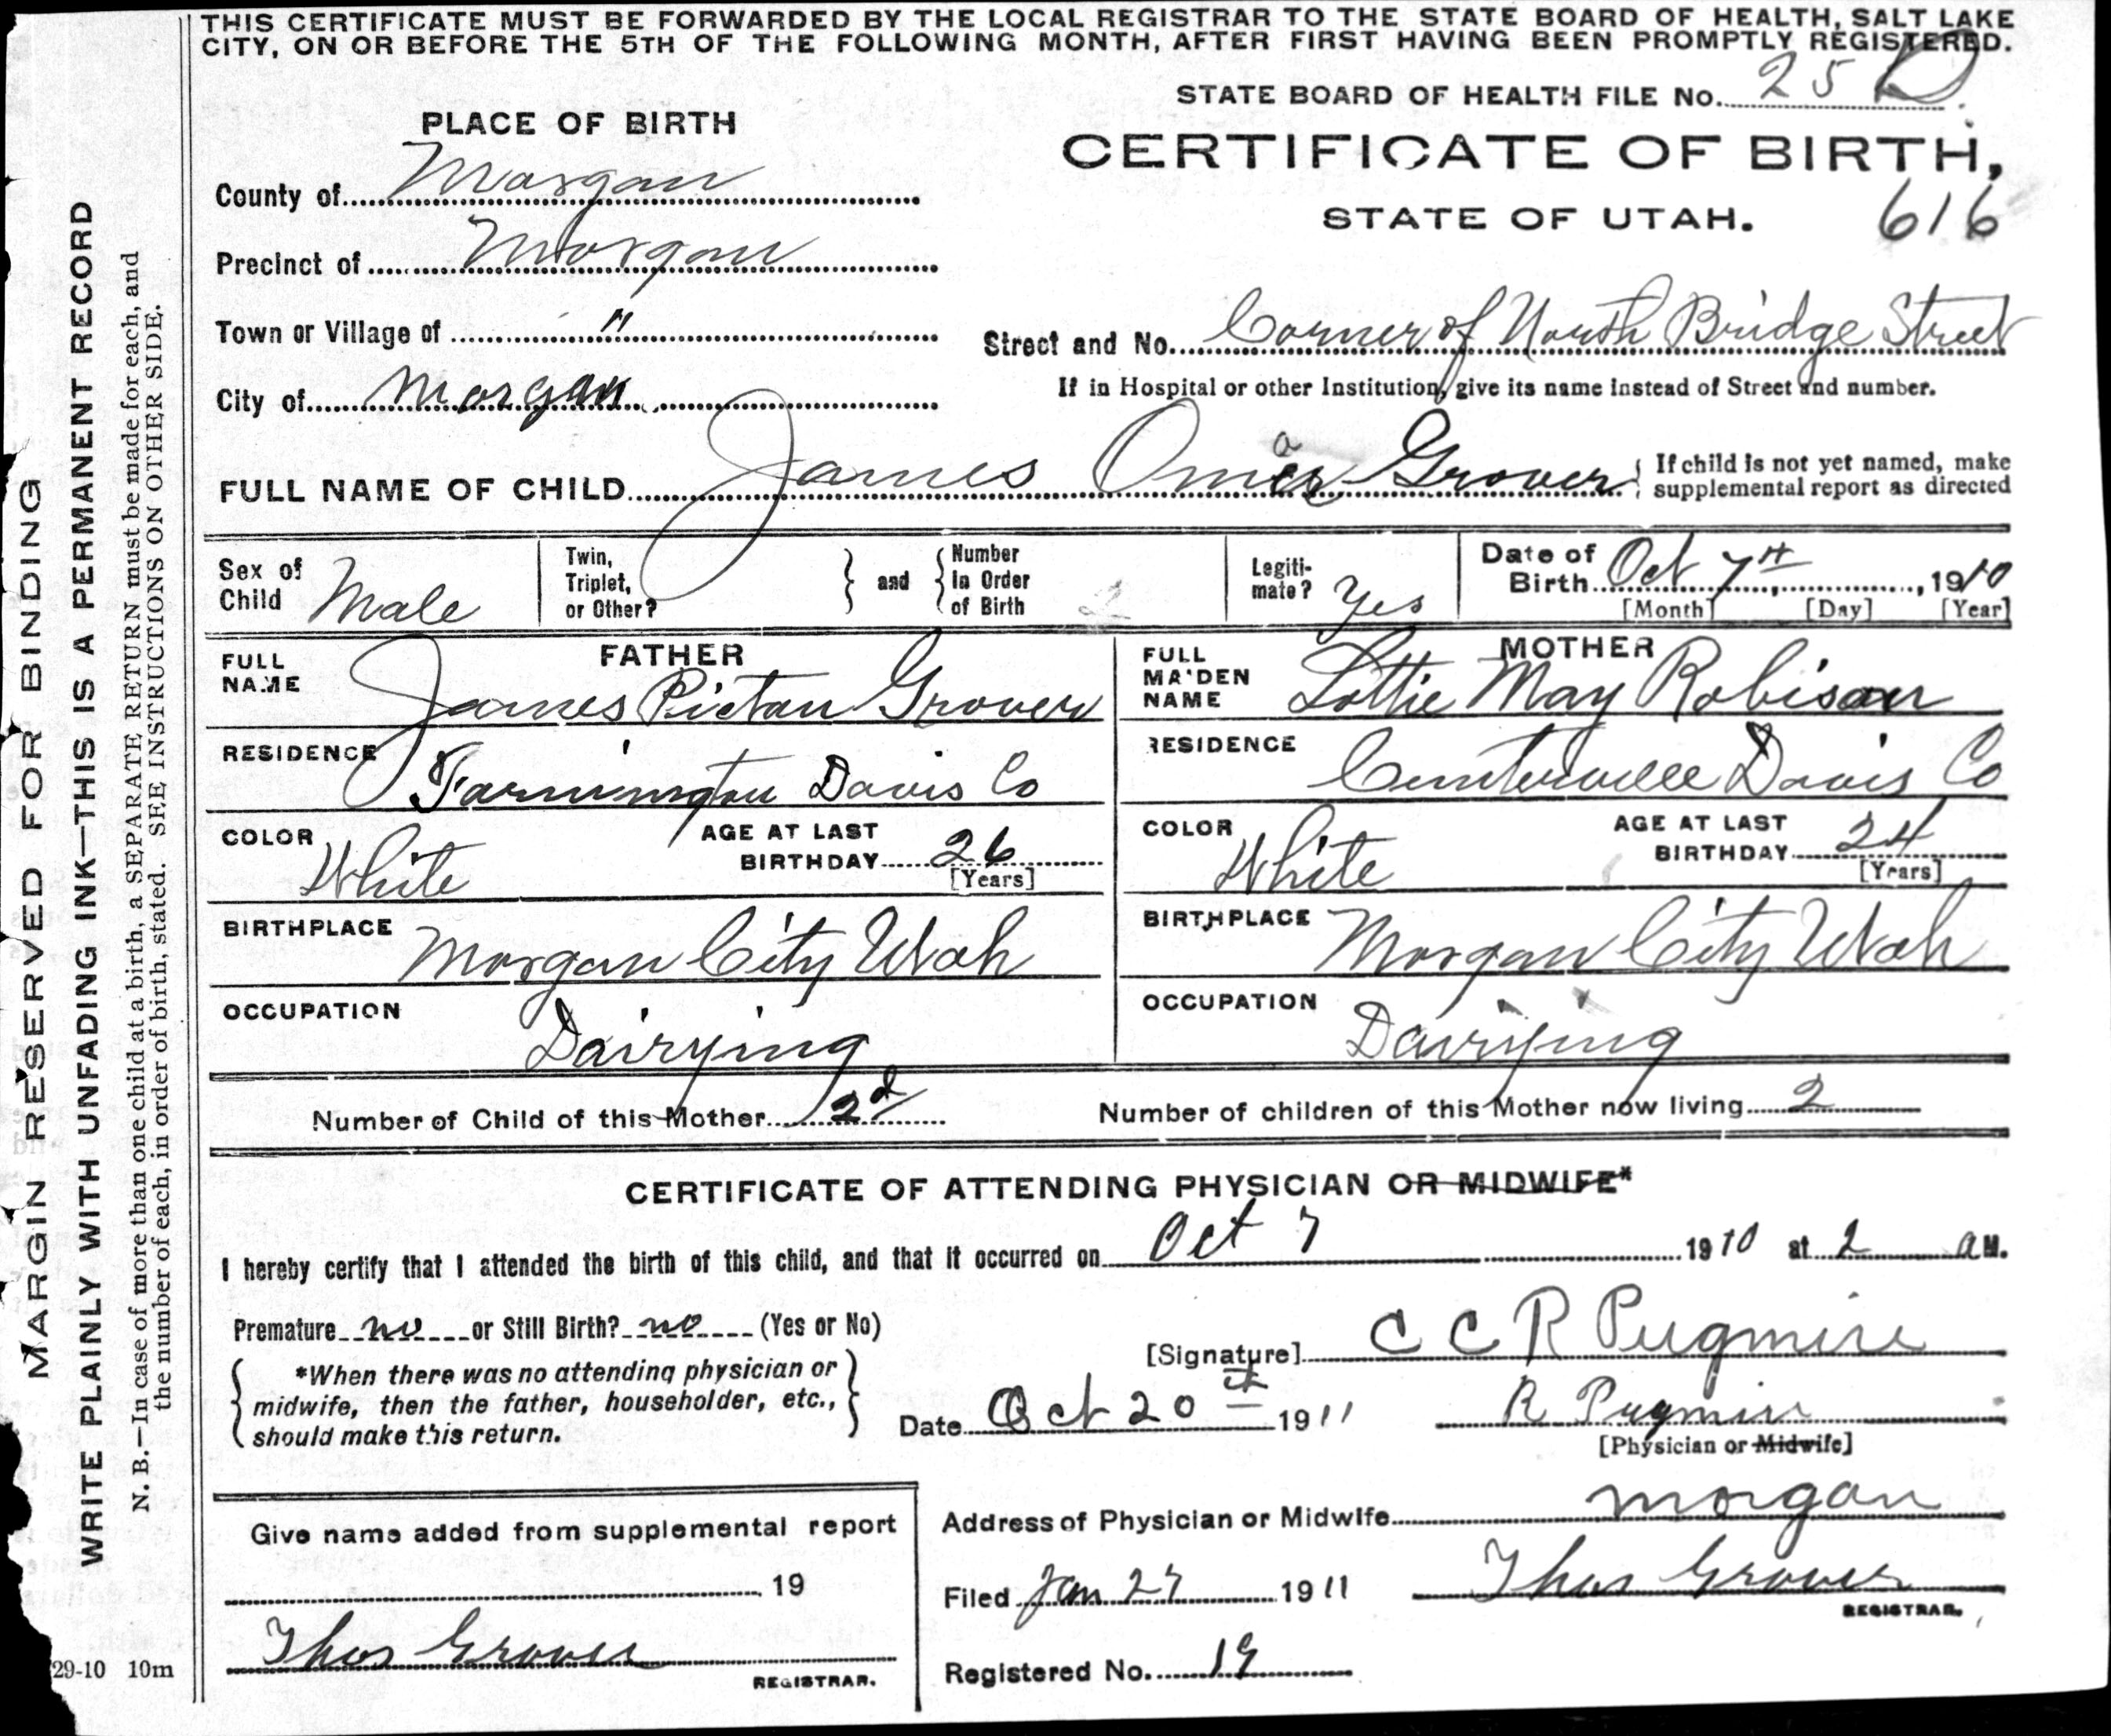 THIS CERTIFICATE MUST BE FORWARDED BY THE LOCAL REGISTRAR TO THE STATE BOARD OF HEALTH, SALT LAKE
CITY, ON OR BEFORE THE 5TH OF THE FOLLOWING MONTH, AFTER FIRST HAVING BEEN PROMPTLY REGISTERED.
STATE BOARD OF HEALTH FILE No. 25
PLACE OF BIRTH
CERTIFICATE OF BIRTH,
County of Morgan
STATE OF UTAH. 616
Precinct of Morgan
Town or Village of "
Street and No. Corner of North Bridge Street
If in Hospital or other Institution, give its name instead of Street and number.
City of Morgan
FULL NAME OF CHILD James Omer Grover
a
If child is not yet named, make
supplemental report as directed
Sex of
Child Male
Twin,
Triplet,
or Other?
and
Number
in Order
of Birth
Legiti-
mate? Yes
Date of
Birth Oct 7th, 1910
[Month] [Day] [Year]
FATHER
FULL
NAME James Picton Grover
MOTHER
FULL
MAIDEN
NAME Lottie May Robison
RESIDENCE Farmington Davis Co
RESIDENCE Centerville Davis Co
COLOR White
AGE AT LAST
BIRTHDAY 26
[Years]
COLOR White
AGE AT LAST
BIRTHDAY 24
[Years]
BIRTHPLACE Morgan City Utah
BIRTHPLACE Morgan City Utah
OCCUPATION Dairying
OCCUPATION Dairying
Number of Child of this Mother 2d
Number of children of this Mother now living 2
CERTIFICATE OF ATTENDING PHYSICIAN OR MIDWIFE*
I hereby certify that I attended the birth of this child, and that it occurred on Oct 7 1910 at 2 a M.
Premature no or Still Birth? no (Yes or No)
[Signature] C C R Pugmire
*When there was no attending physician or
midwife, then the father, householder, etc.,
should make this return.
Date Oct 20th 1911
R Pugmire
[Physician or Midwife]
Give name added from supplemental report
19
Thos Grover
REGISTRAR.
Address of Physician or Midwife Morgan
Filed Jan 27 1911
Thos Grover
REGISTRAR.
Registered No. 19
29-10 10m
MARGIN RESERVED FOR BINDING
WRITE PLAINLY WITH UNFADING INK—THIS IS A PERMANENT RECORD
N. B.—In case of more than one child at a birth, a SEPARATE RETURN must be made for each, and
the number of each, in order of birth, stated. SEE INSTRUCTIONS ON OTHER SIDE.